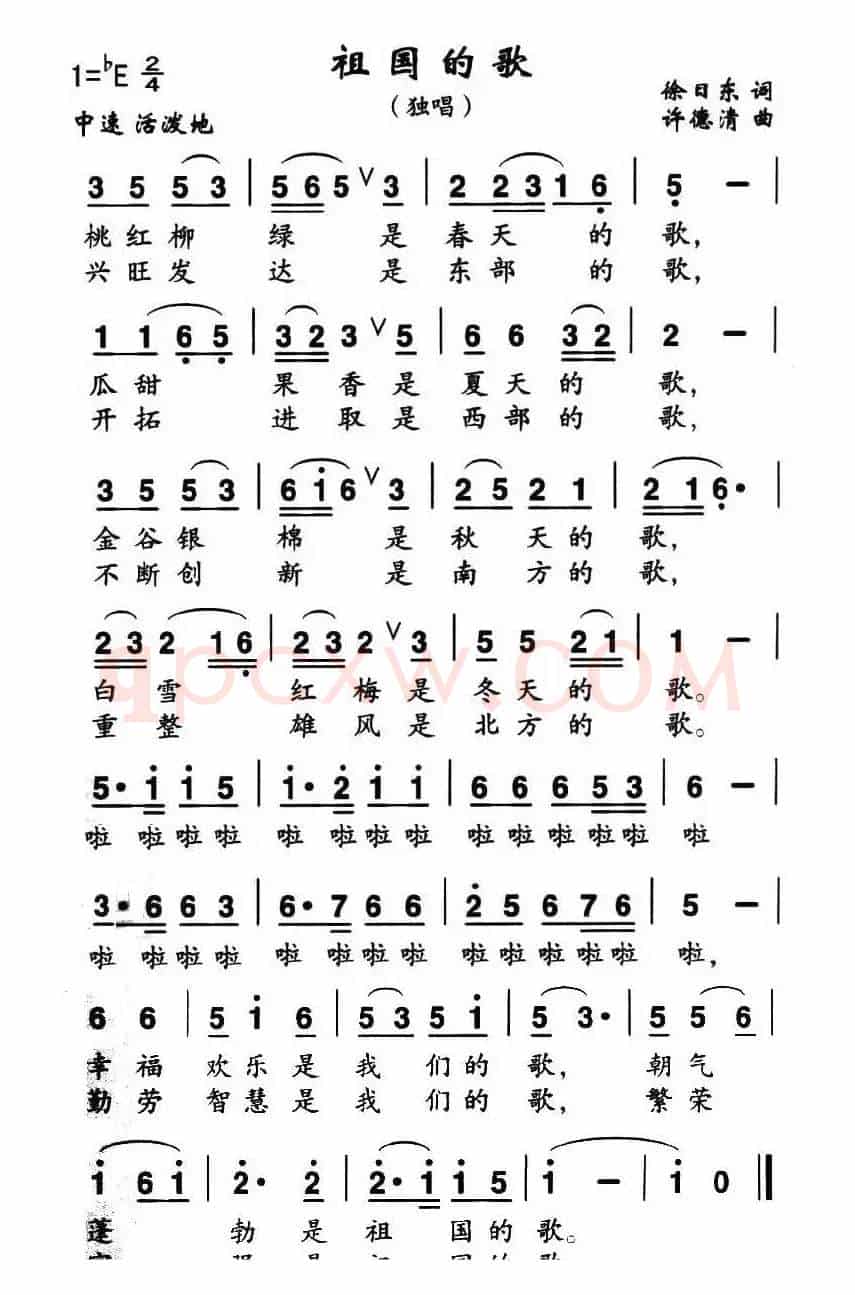 祖国的歌
1=♭E 2/4
（独唱）
徐日东 词
中速 活泼地
许德清 曲
3 5 5 3 | 5 6 5 ∨ 3 | 2 2 3 1 6 | 5 － |
桃红柳 绿 是 春天 的 歌，
兴旺发 达 是 东部 的 歌，
1 1 6 5 | 3 2 3 ∨ 5 | 6 6 3 2 | 2 － |
瓜甜 果香是夏天的 歌，
开拓 进取是西部的 歌，
3 5 5 3 | 6 i 6 ∨ 3 | 2 5 2 1 | 2 1 6· |
金谷银 棉 是 秋 天的 歌，
不断创 新 是 南 方的 歌，
2 3 2 1 6 | 2 3 2 ∨ 3 | 5 5 2 1 | 1 － |
白 雪 红 梅是冬天的 歌。
重 整 雄 风是北方的 歌。
qpcxw.COM
5· i i 5 | i· 2 i i | 6 6 6 5 3 | 6 － |
啦 啦啦啦 啦 啦啦啦 啦啦啦啦啦 啦
3· 6 6 3 | 6· 7 6 6 | 2 5 6 7 6 | 5 － |
啦 啦啦啦 啦 啦啦啦 啦啦啦啦啦 啦，
6 6 | 5 i 6 | 5 3 5 i | 5 3· | 5 5 6 |
幸福 欢乐是 我 们的 歌， 朝气
勤劳 智慧是 我 们的 歌， 繁荣
i 6 i | 2· 2 | 2· i i 5 | i － | i 0 ‖
蓬 勃 是 祖 国的歌。